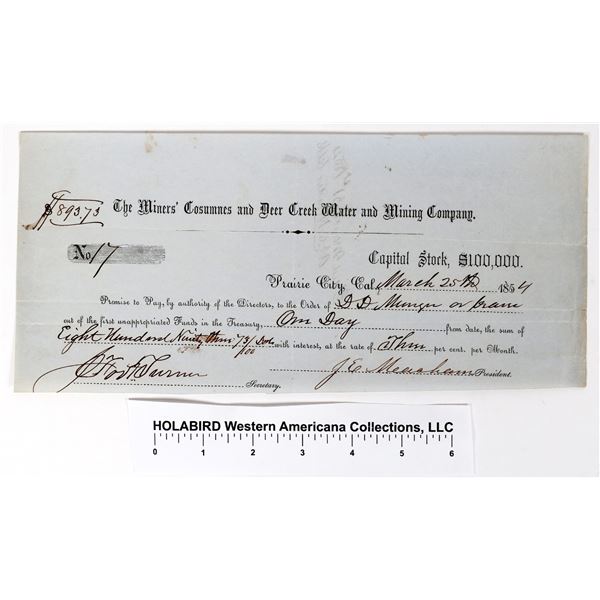 $893.73
The Miners' Cosumnes and Deer Creek Water and Mining Company.
No 17
Capital Stock, $100,000.
Prairie City, Cal, March 25th 1854
Promise to Pay, by authority of the Directors, to the Order of D. D. Munger or Crane
out of the first unappropriated Funds in the Treasury, One Day from date, the sum of
Eight Hundred Ninety three 73/100 Dol with interest, at the rate of Three per cent. per Month.
Turner Secretary.
J. E. Meacham President.
HOLABIRD Western Americana Collections, LLC
0 1 2 3 4 5 6